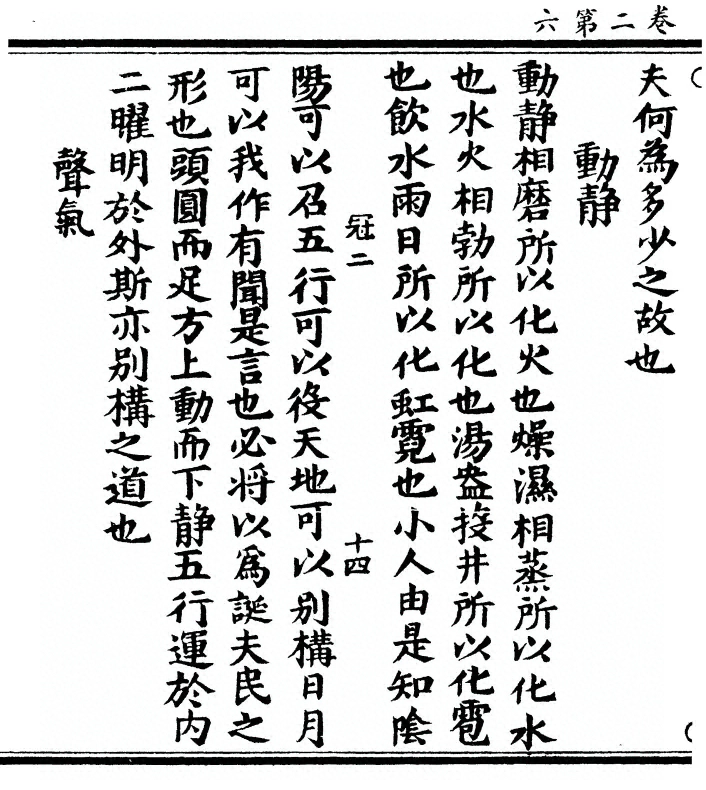 卷二第六
夫何為多少之故也
動静
動静相磨所以化火也燥濕相蒸所以化水
也水火相勃所以化也湯盎投井所以化雹
也飲水雨日所以化虹霓也小人由是知陰
冠二 十四
陽可以召五行可以役天地可以别構日月
可以我作有聞是言也必将以爲誕夫民之
形也頭圓而足方上動而下静五行運於内
二曜明於外斯亦别構之道也
聲氣